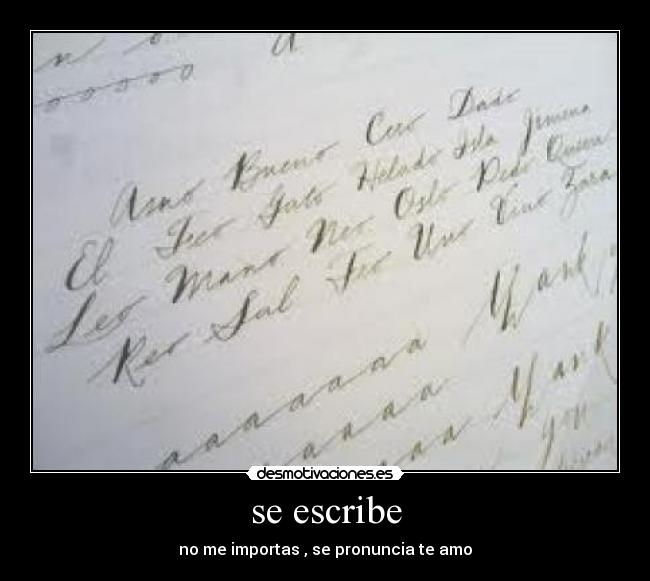 ooooo
Asno Bueno Cero Dado
El Feo Gato Helado Isla Jimena
Leo Mano Neo Oslo Pedo Quien
Reo Sal Teo Uno Vino Zara
aaaaaaa Yank
aaaaa Yank
desmotivaciones.es
se escribe
no me importas , se pronuncia te amo